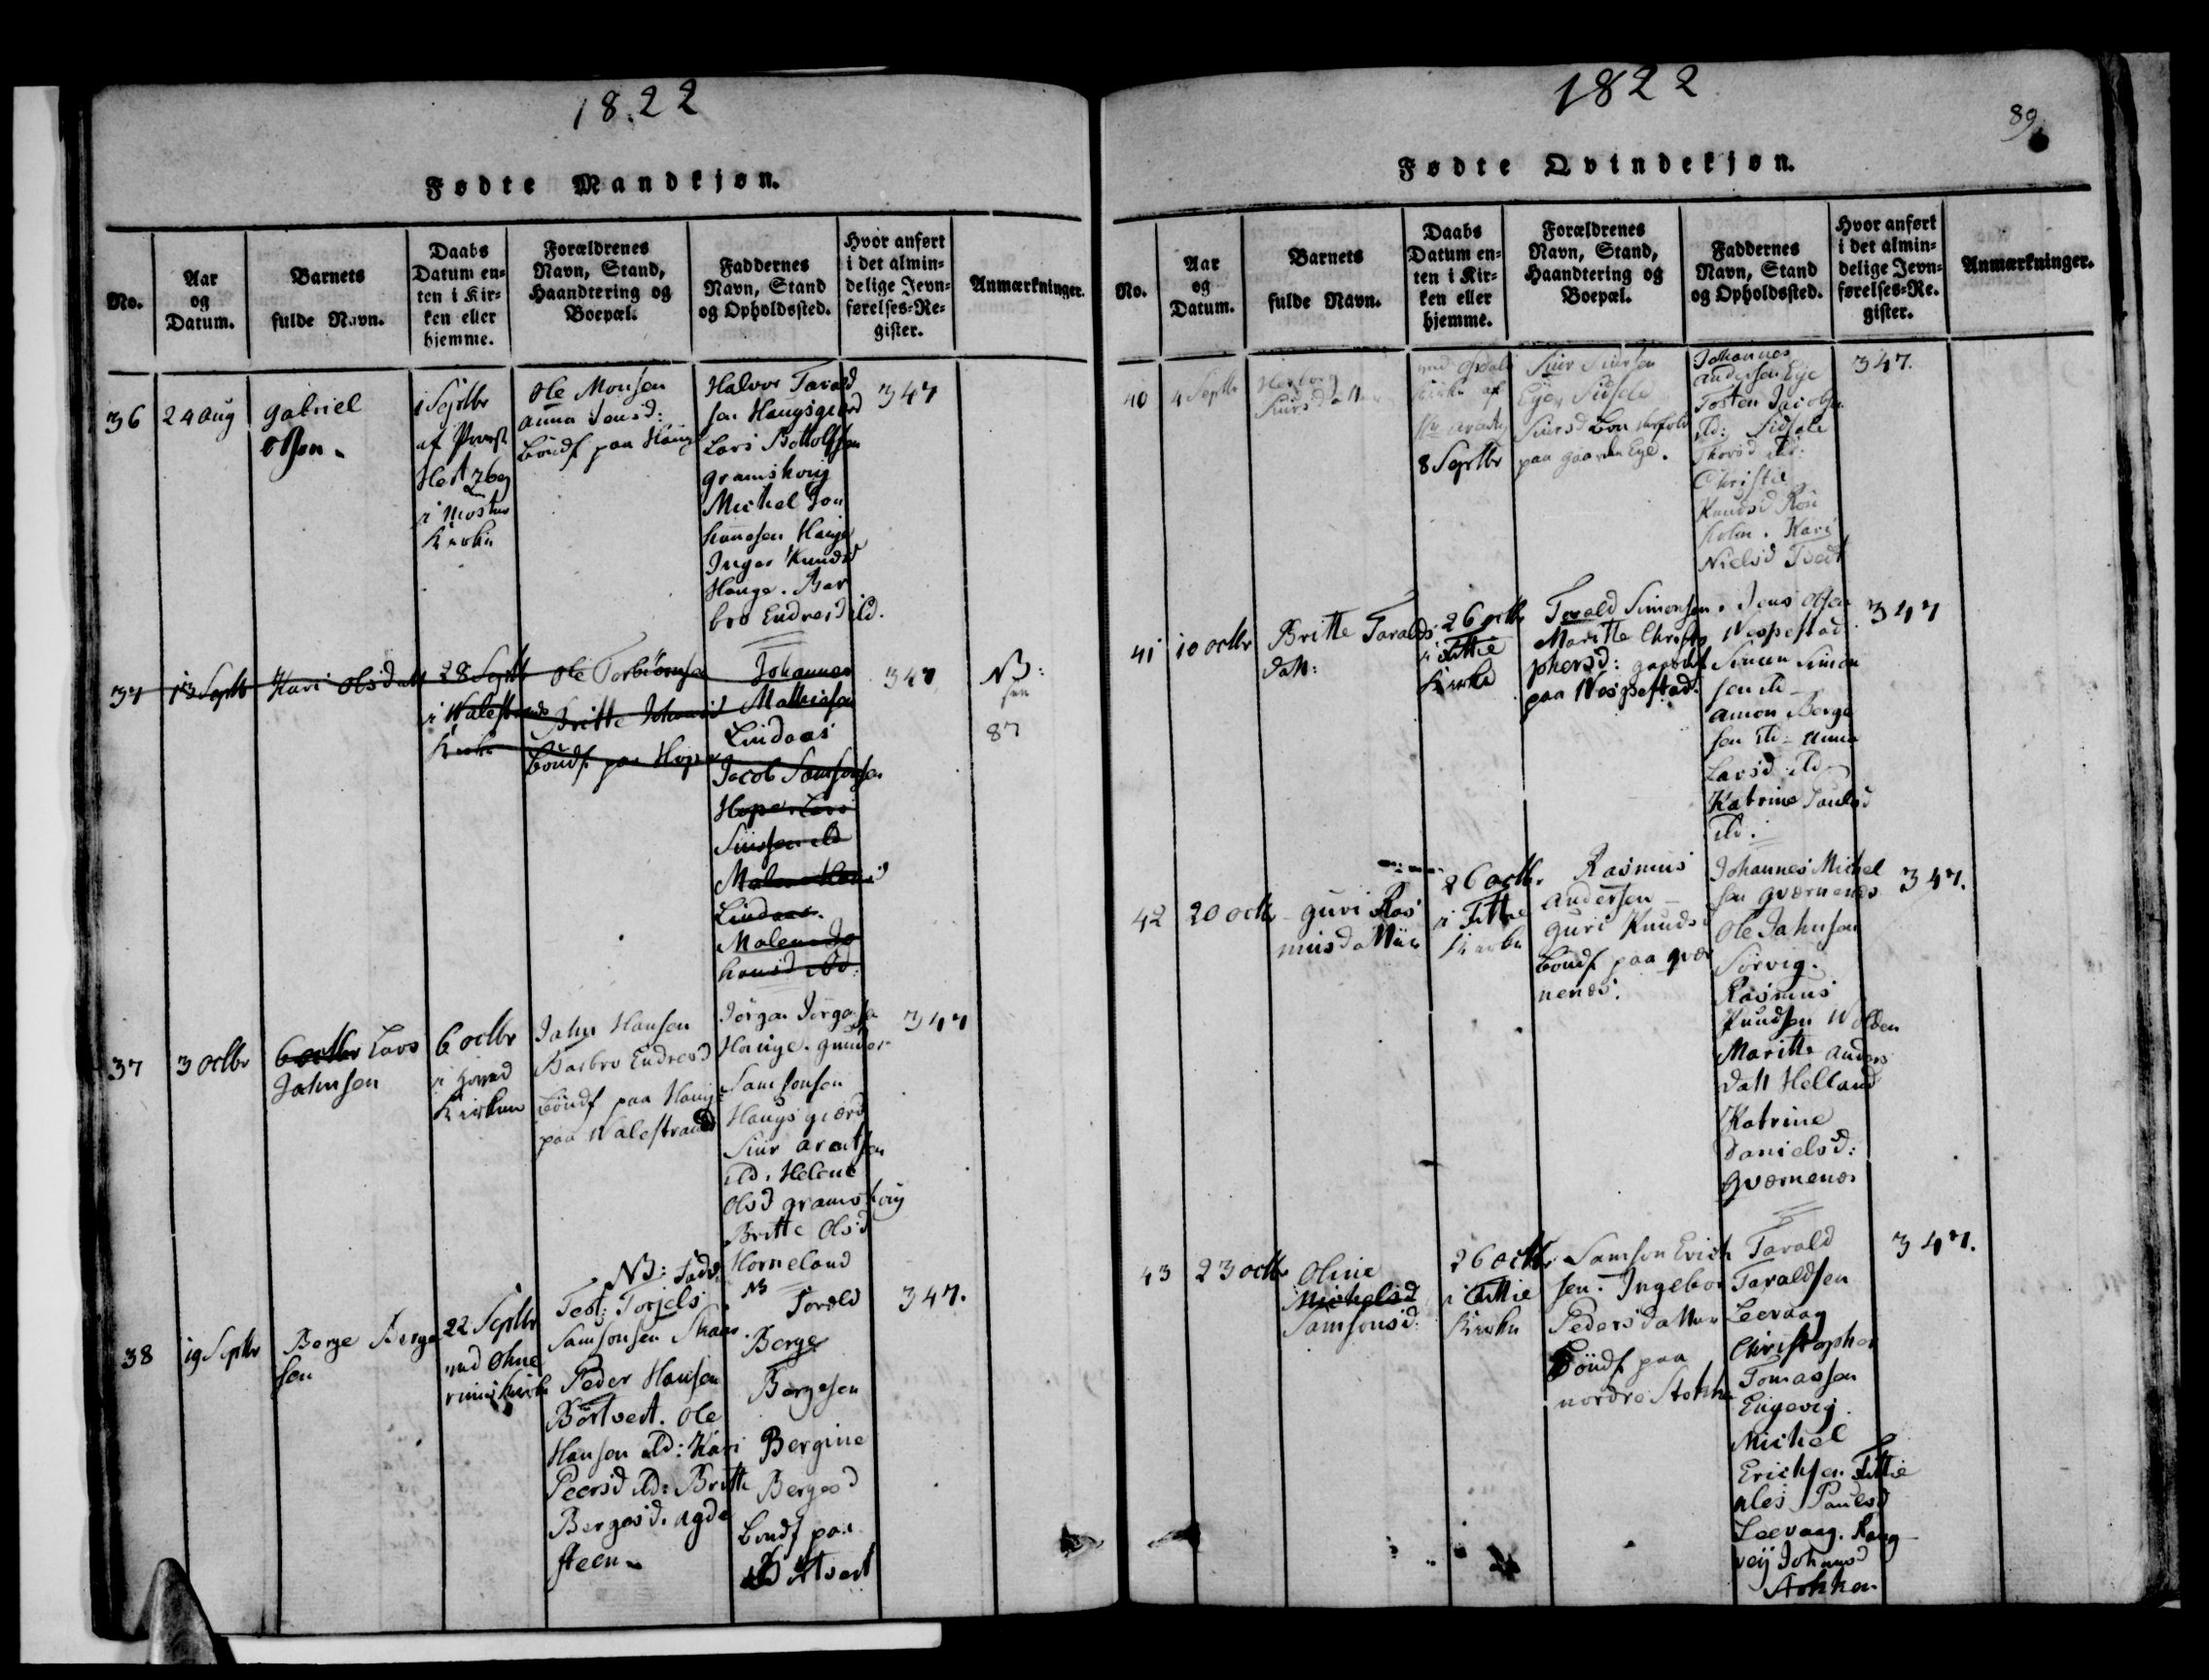 1822
Fødte Mandkjøn.
No.
Aar
og
Datum.
Barnets
fulde Navn.
Daabs
Datum en-
ten i Kir-
ken eller
hjemme.
Forældrenes
Navn, Stand,
Haandtering og
Boepæl.
Faddernes
Navn, Stand
og Opholdssted.
Hvor anført
i det almin-
delige Jevn-
førelses-Re-
gister.
Anmærkninger.
36
24 Aug
Gabriel
Olsen.
1 Septbr
af Provst
i Moster
Kirke
Ole Monsen
Anna Jensd:
Böndf paa Haug
Halvor Tarald
sen Haugsgierd
Lars Bottolfsen
Gramshoug
Michel Jon
hannesen Hauge
Inger Knudsd
Hauge. Bar
bro Endresd ild.
347
37
13 Septb
Kari Olsdatt
28 Septb
i Walestrands
Kirke
Ole Torbiörnsen
Britte Johansd
Böndf paa Hope
Johannes
Mathiasen
Lindaas
Jacob Samsonsen
Hope Lars
Siursen ild
Malene
Lindaas.
Malene Jo
hansd ild:
347
NB:
sen
87
37
3 Octbr
6 octbr Lars
Jahnsen
6 octbr
i
Kirken
Jahn Hansen
Barbro Endresd
Böndf paa Haug
paa Walestrand
Jörgen Jörgensen
Hauge. Gunder
Samsonsen
Haugsgiærd
Siur Arentsen
ild. Helene
Olsd Gramshoug
Britte Olsd
Horneland
347
38
19 Septbr
Børge Børge
sen
22 Septbr
ved
NB: Fadd:
Test: Torjels
Samsonsen Skaar.
Peder Hansen
Börtvedt. Ole
Hansen ild: Kari
Peersd ild: Britte
Børgesd. Agde
steen.
NB
Torald
Børge
Børgesen
Bergine
Børgesd
Böndf paa
347.
1822
89
Fødte Qvindekjøn.
No.
Aar
og
Datum.
Barnets
fulde Navn.
Daabs
Datum en-
ten i Kir-
ken eller
hjemme.
Forældrenes
Navn, Stand,
Haandtering og
Boepæl.
Faddernes
Navn, Stand
og Opholdssted.
Hvor anført
i det almin-
delige Jevn-
førelses-Re.
gister.
Anmærkninger.
40
4 Septbr
Herborg
Siursdatter
ved Opdals
Kirke af
8 Septbr
Siur Siursen
Eye, Sidsele
Siursd
paa Gaarden Eye.
Johannes
Andersen Eye
Tosten Jacobsen
ild: Sidsele
Thorsd ild:
Christie
Knudsd
holm. Kari
Nielsd Tvedt
347.
41
10 octbr
Britte Taralds
datt:
26 octb
i Fittie
Kirke
Tarald Simonsen.
Maritte Christo
phersd:
paa Wespestad.
Jens Olsen
Wespestad
Simen Simon
sen ild
Amon Børge
sen ild - Anna
Larsd ild
Katrine Paulsd
ild.
347
42
20 octb
Guri Ras
musdatter
26 octb.
i Fittie
Kirke
Rasmus
Andersen
Guri Knudsd
Böndf paa Qvær
nenæs.
Johannes Michel
sen Qværnenæs
Ole Jahnsen
Sørvig.
Rasmus
Knudsen Wolden
Maritte Anders
datt Helland
Katrine
Danielsd:
Qværnenæs
347.
43
23 octbr
Oline
Michelsd
Samsonsd:
26 octbr
i Fittie
Kirke
Samson Erich
sen. Ingebor
Pedersdatter
Böndf paa
nordre Stokke
Tarald
Taraldsen
Leevaag
Christopher
Tomassen
Engevig.
Michel
Erichsen Fittie
Ales Paulsd
Leevaag. Rang
vei Johansd
Stokken
347.